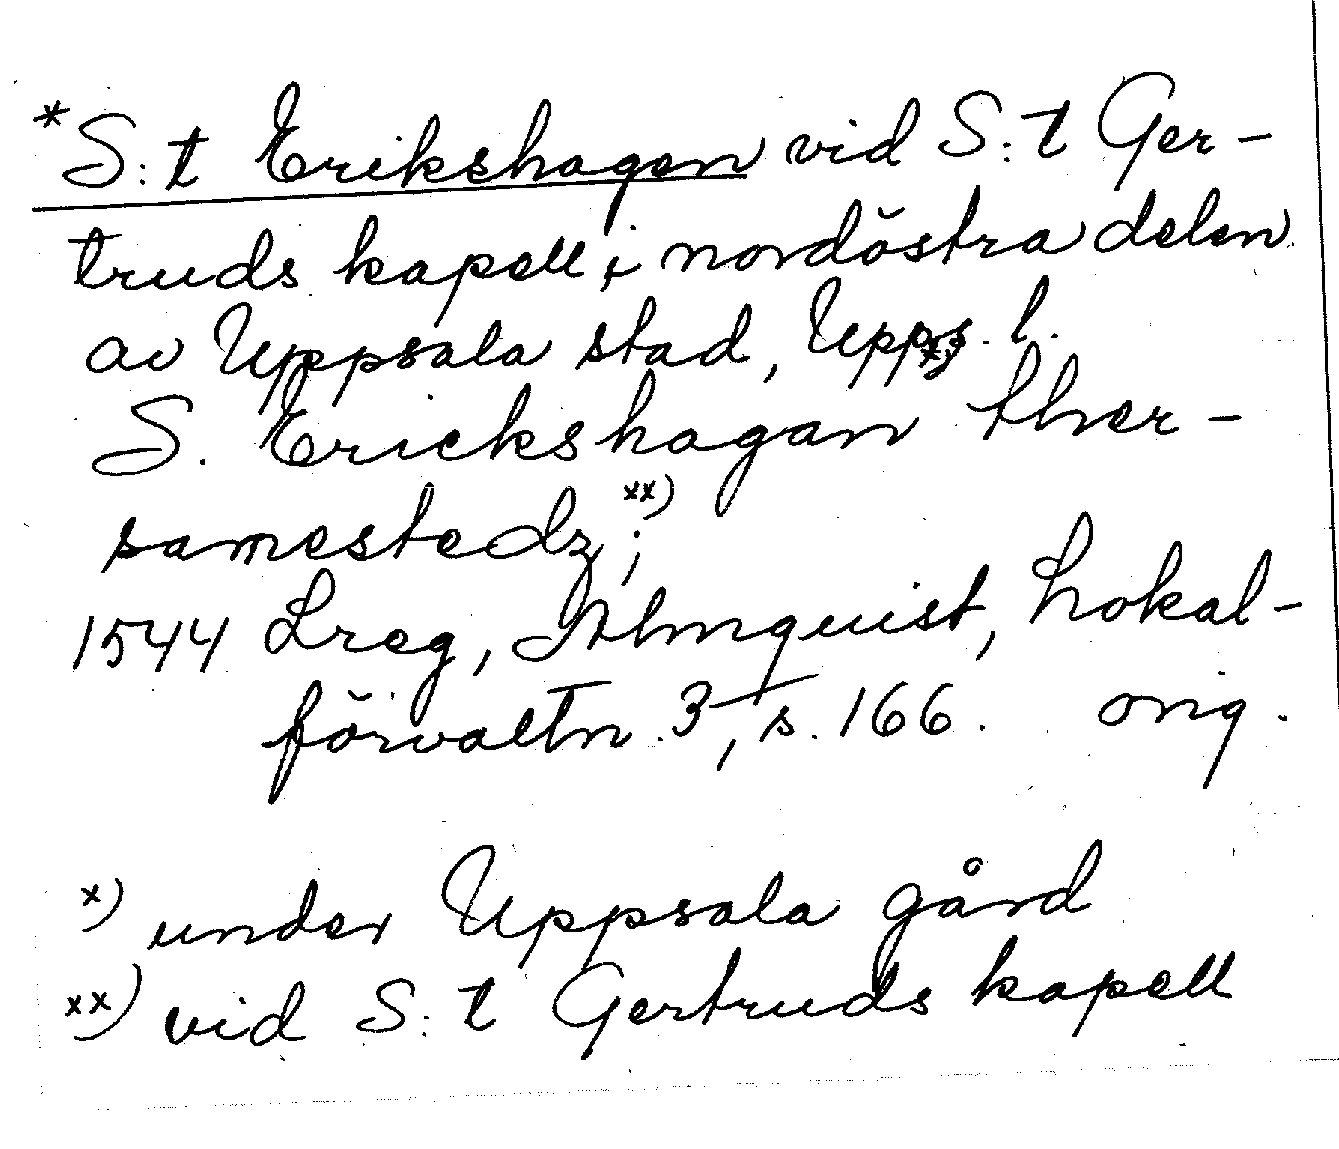 *S:t Erikshagen vid S:t Ger-
truds kapell i nordöstra delen
av Uppsala stad, Upps. l.
S. Erickshagan x) ther-
samestedz xx);
1544 Lreg, Almquist, Lokal-
förvaltn. 3, s. 166. orig.
x) under Uppsala gård
xx) vid S:t Gertruds kapell